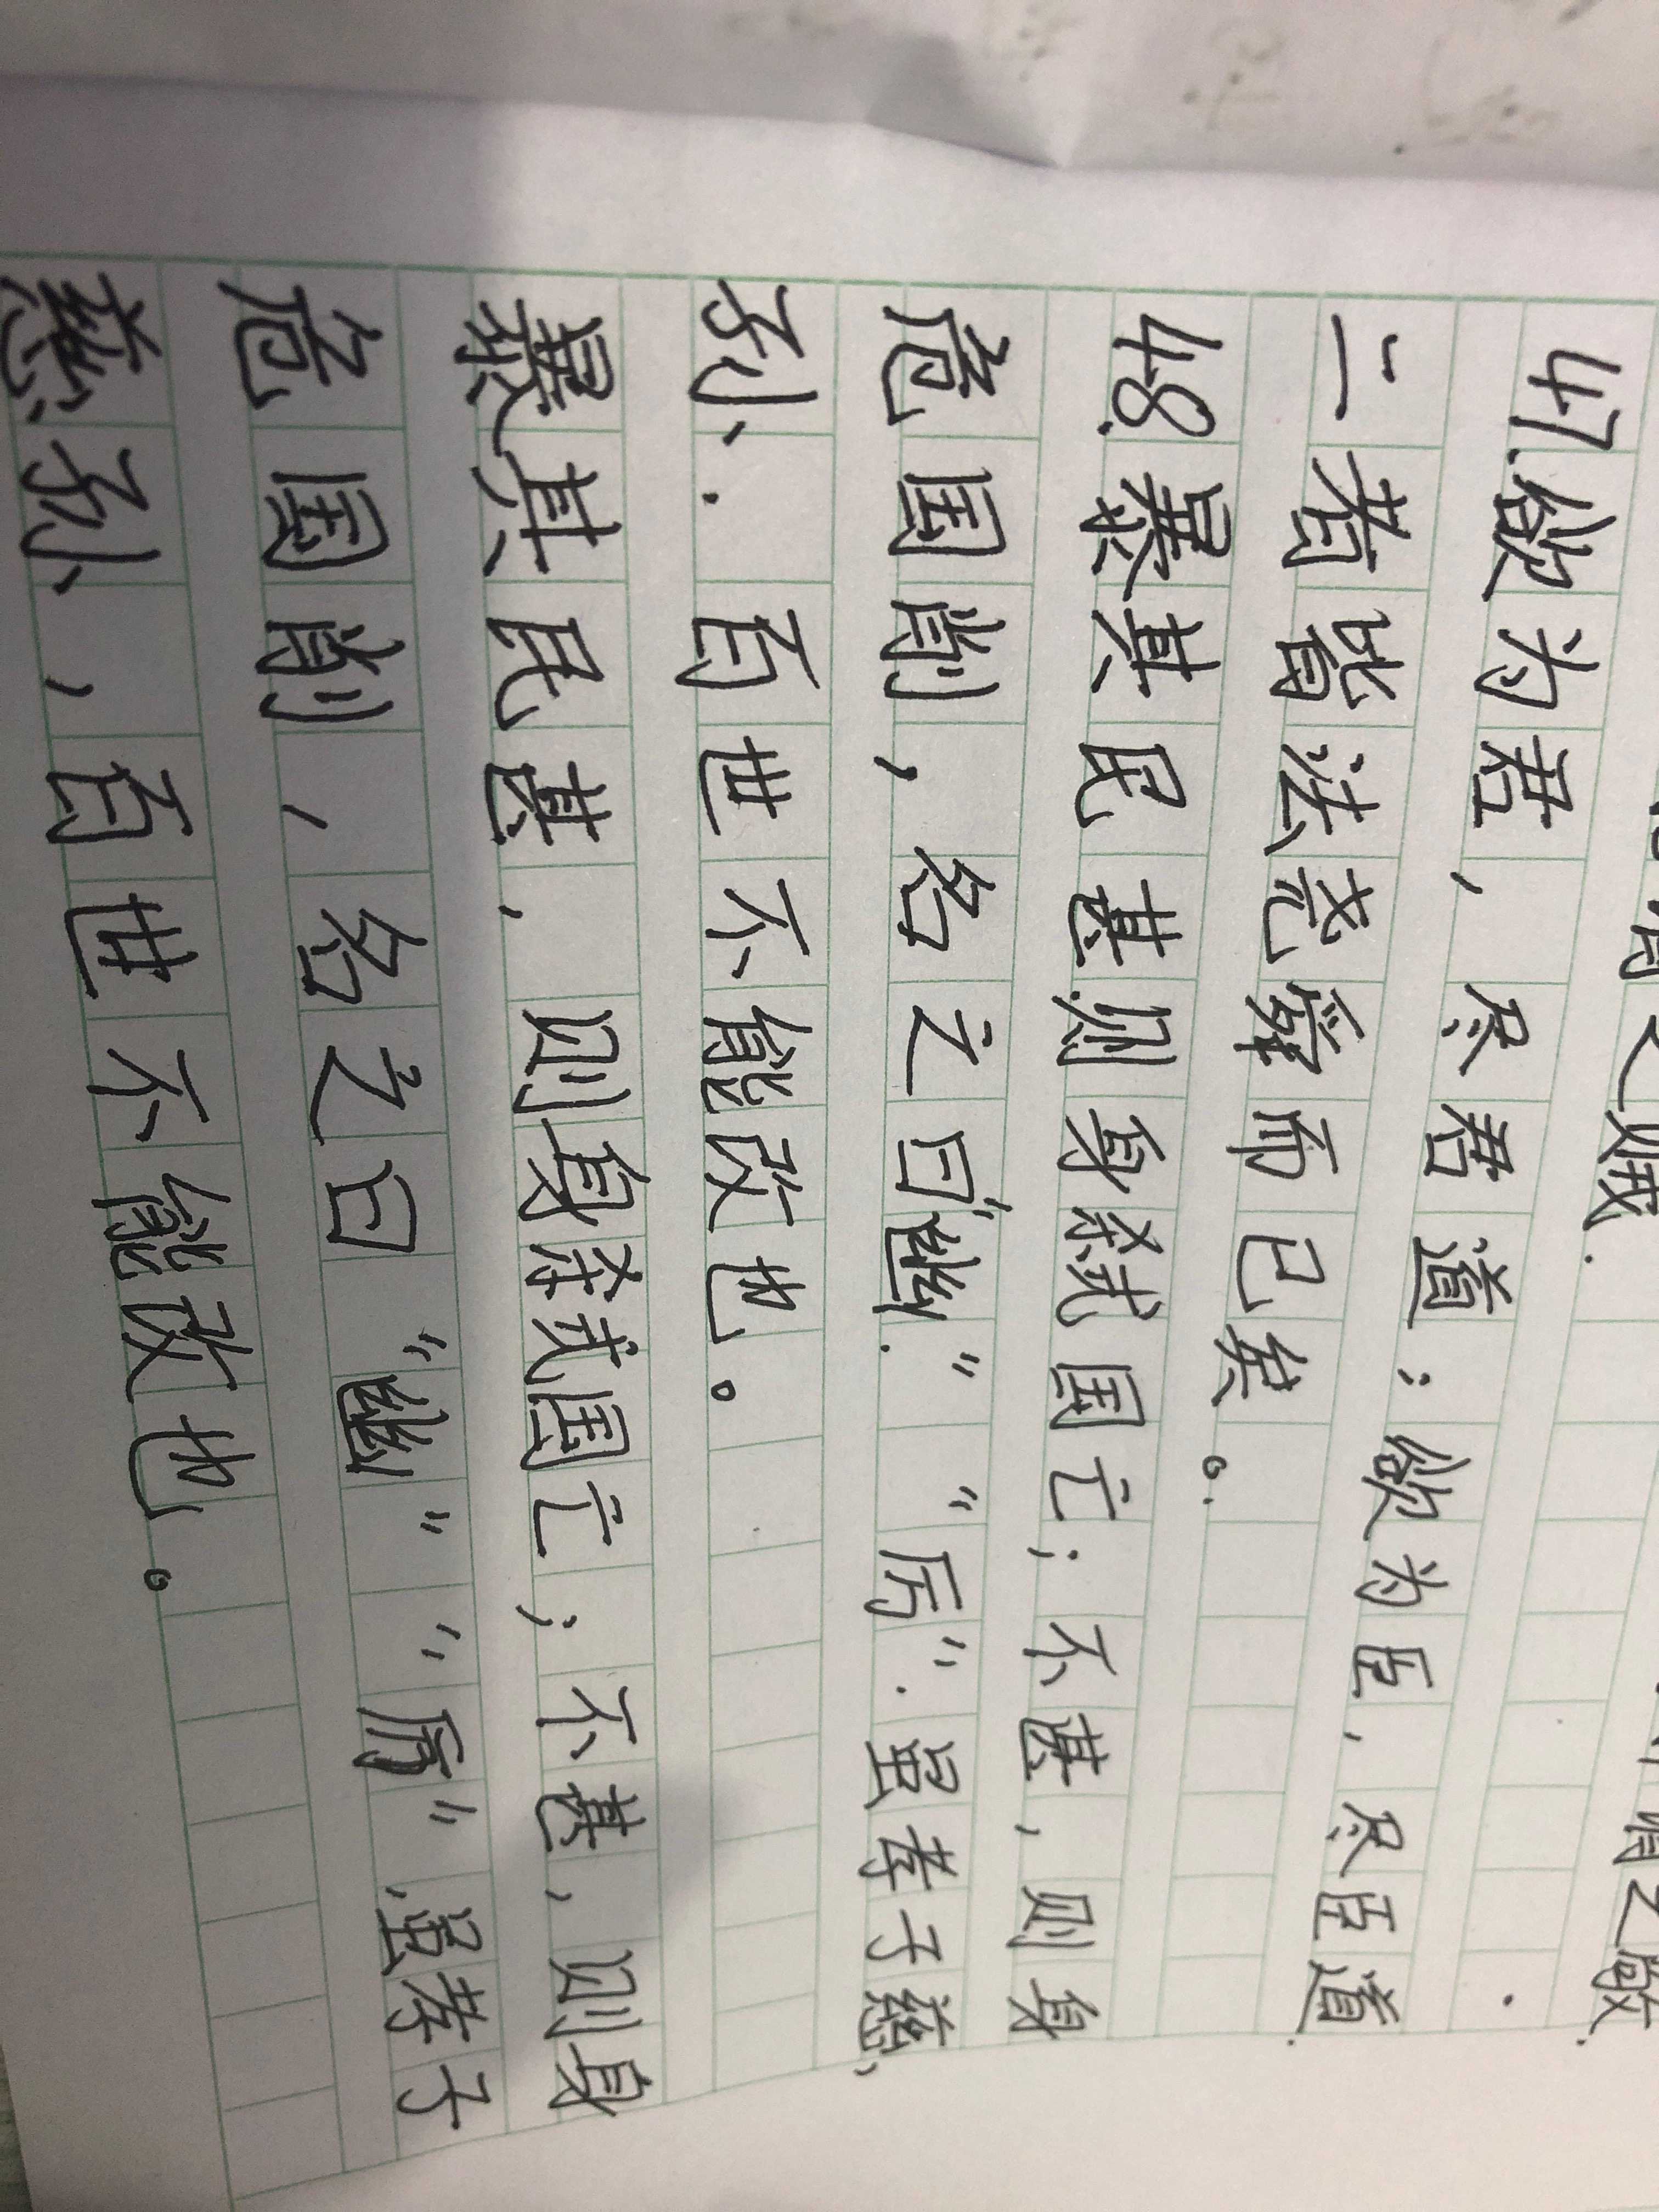 之贼.
之敵.
47.欲为君，尽君道；欲为臣，尽臣道.
二者皆法尧舜而已矣。
48.暴其民甚.则身弑国亡；不甚，则身
危国削，名之曰“幽.”“厉”.虽孝子慈，
孙.百世不能改也。
暴其民甚，则身弑国亡；不甚，则身
危国削，名之曰“幽”“厉”，虽孝子
慈孙，百世不能改也。